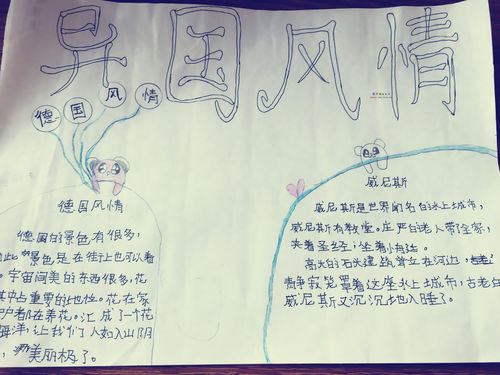 异国风情
德国风情
德国风情
德国的景色有很多,
此 景色是在街上也可以看
。宇宙间美的东西很多,花
其中占重要的地位。花在家
户都在养花。汇成了一个花
海洋,让我们人如入山阴
,美丽极了。
威尼斯
威尼斯是世界闻名的水上城市,
威尼斯有教堂。庄严的老人带住家,
夹着圣经,坐着小船去。
高大的石头建筑耸立在河边,
静寂笼罩着这座水上城市,古老的
威尼斯又沉沉地入睡了。